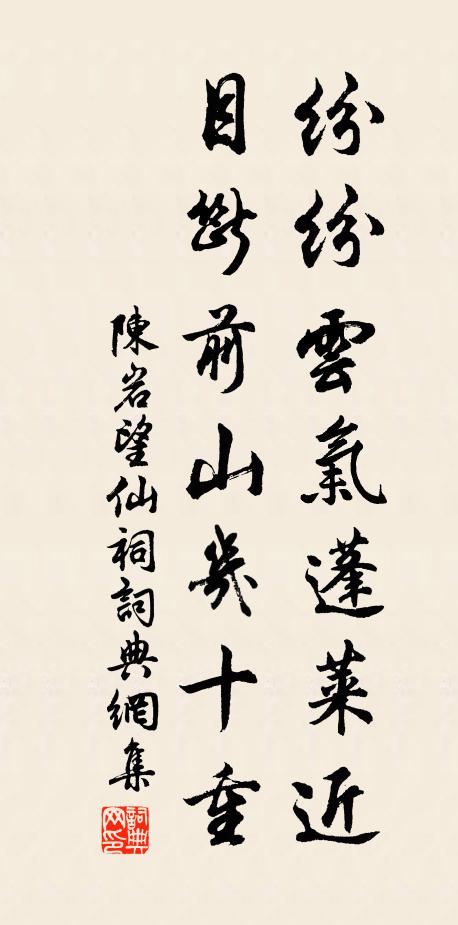 紛紛雲氣蓬萊近
目斷前山幾十重
陳岩望仙祠詞典網集
詞典網印